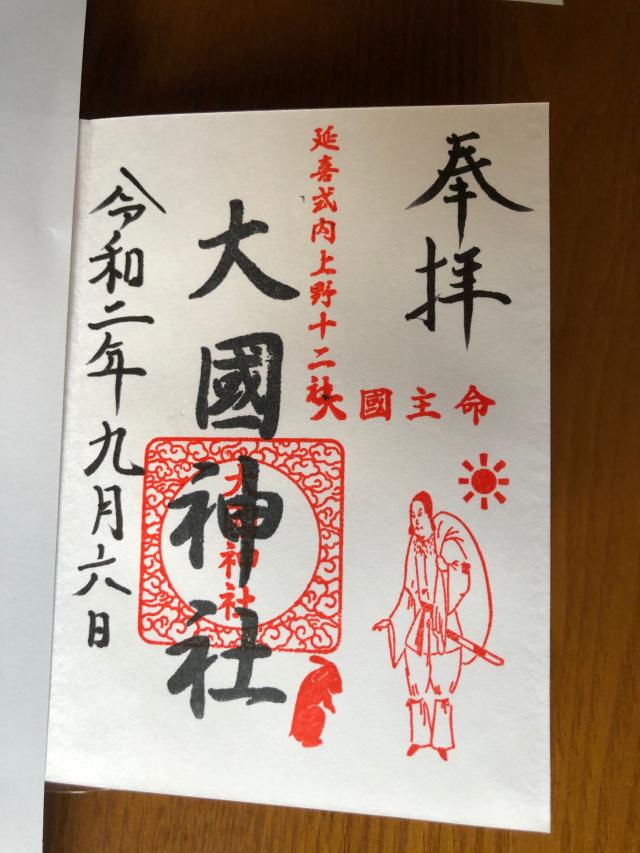 奉拝
大國主命
延喜式内上野十二社
大國神社
大國神社
令和二年九月六日